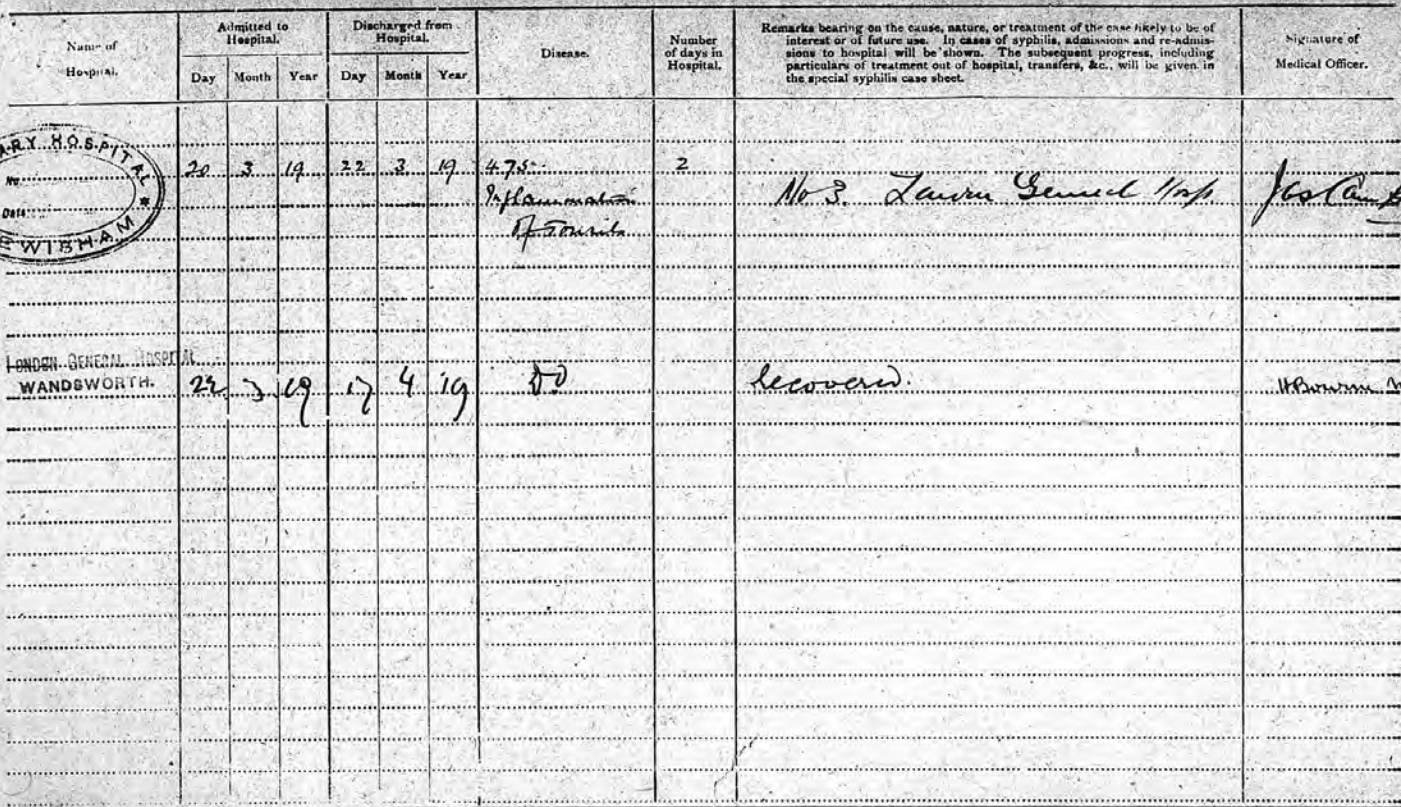 Name of
Hospital.
Admitted to
Hospital.
Day Month Year
Discharged from
Hospital.
Day Month Year
Disease.
Number
of days in
Hospital.
Remarks bearing on the cause, nature, or treatment of the case likely to be of
interest or of future use. In cases of syphilis, admissions and re-admis-
sions to hospital will be shown. The subsequent progress, including
particulars of treatment out of hospital, transfers, &c., will be given in
the special syphilis case sheet.
Signature of
Medical Officer.
ARY HOSPITAL
No
Date
EWISHAM *
20 3 19 22 3 19 475
Inflammation
of Tonsils
2
No 3. General Hosp
Jas
LONDON GENERAL HOSPITAL
WANDSWORTH.
22 3 19 17 4 19 Do recovered.